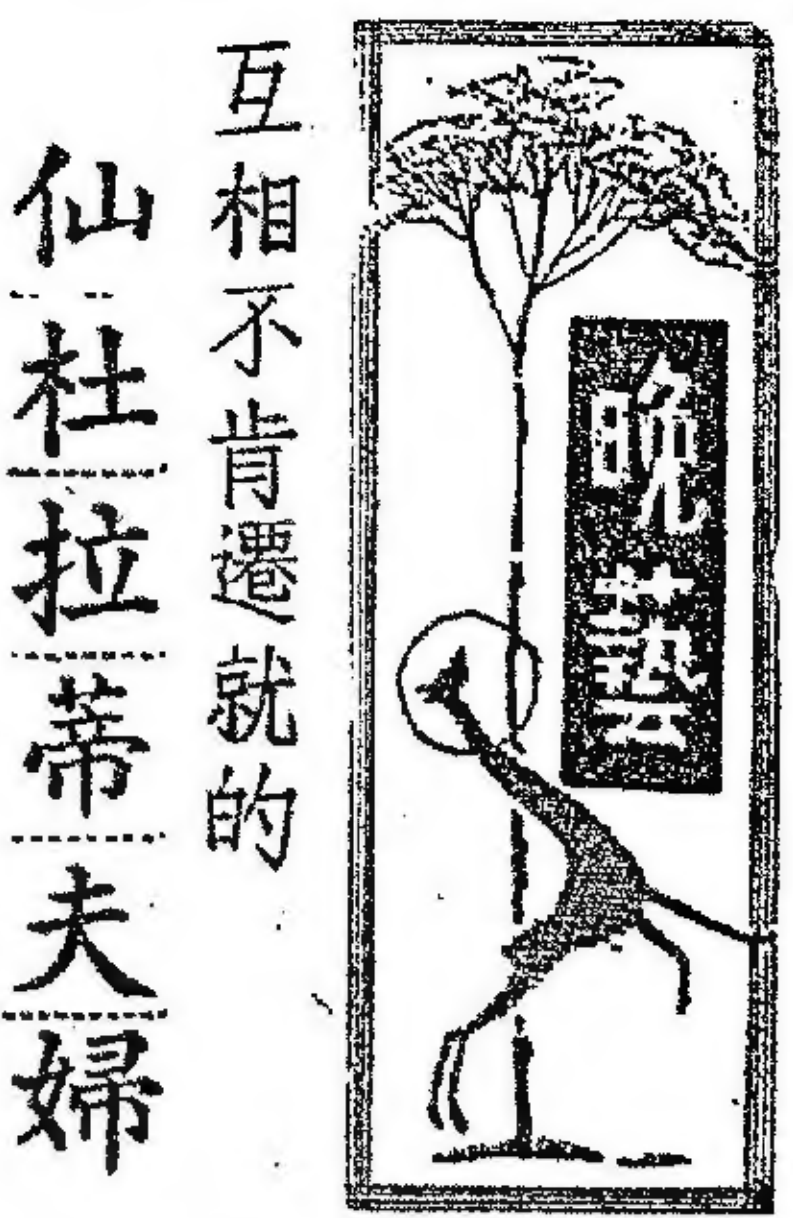 晩藝
互相不肯遷就的
仙杜拉蒂夫婦